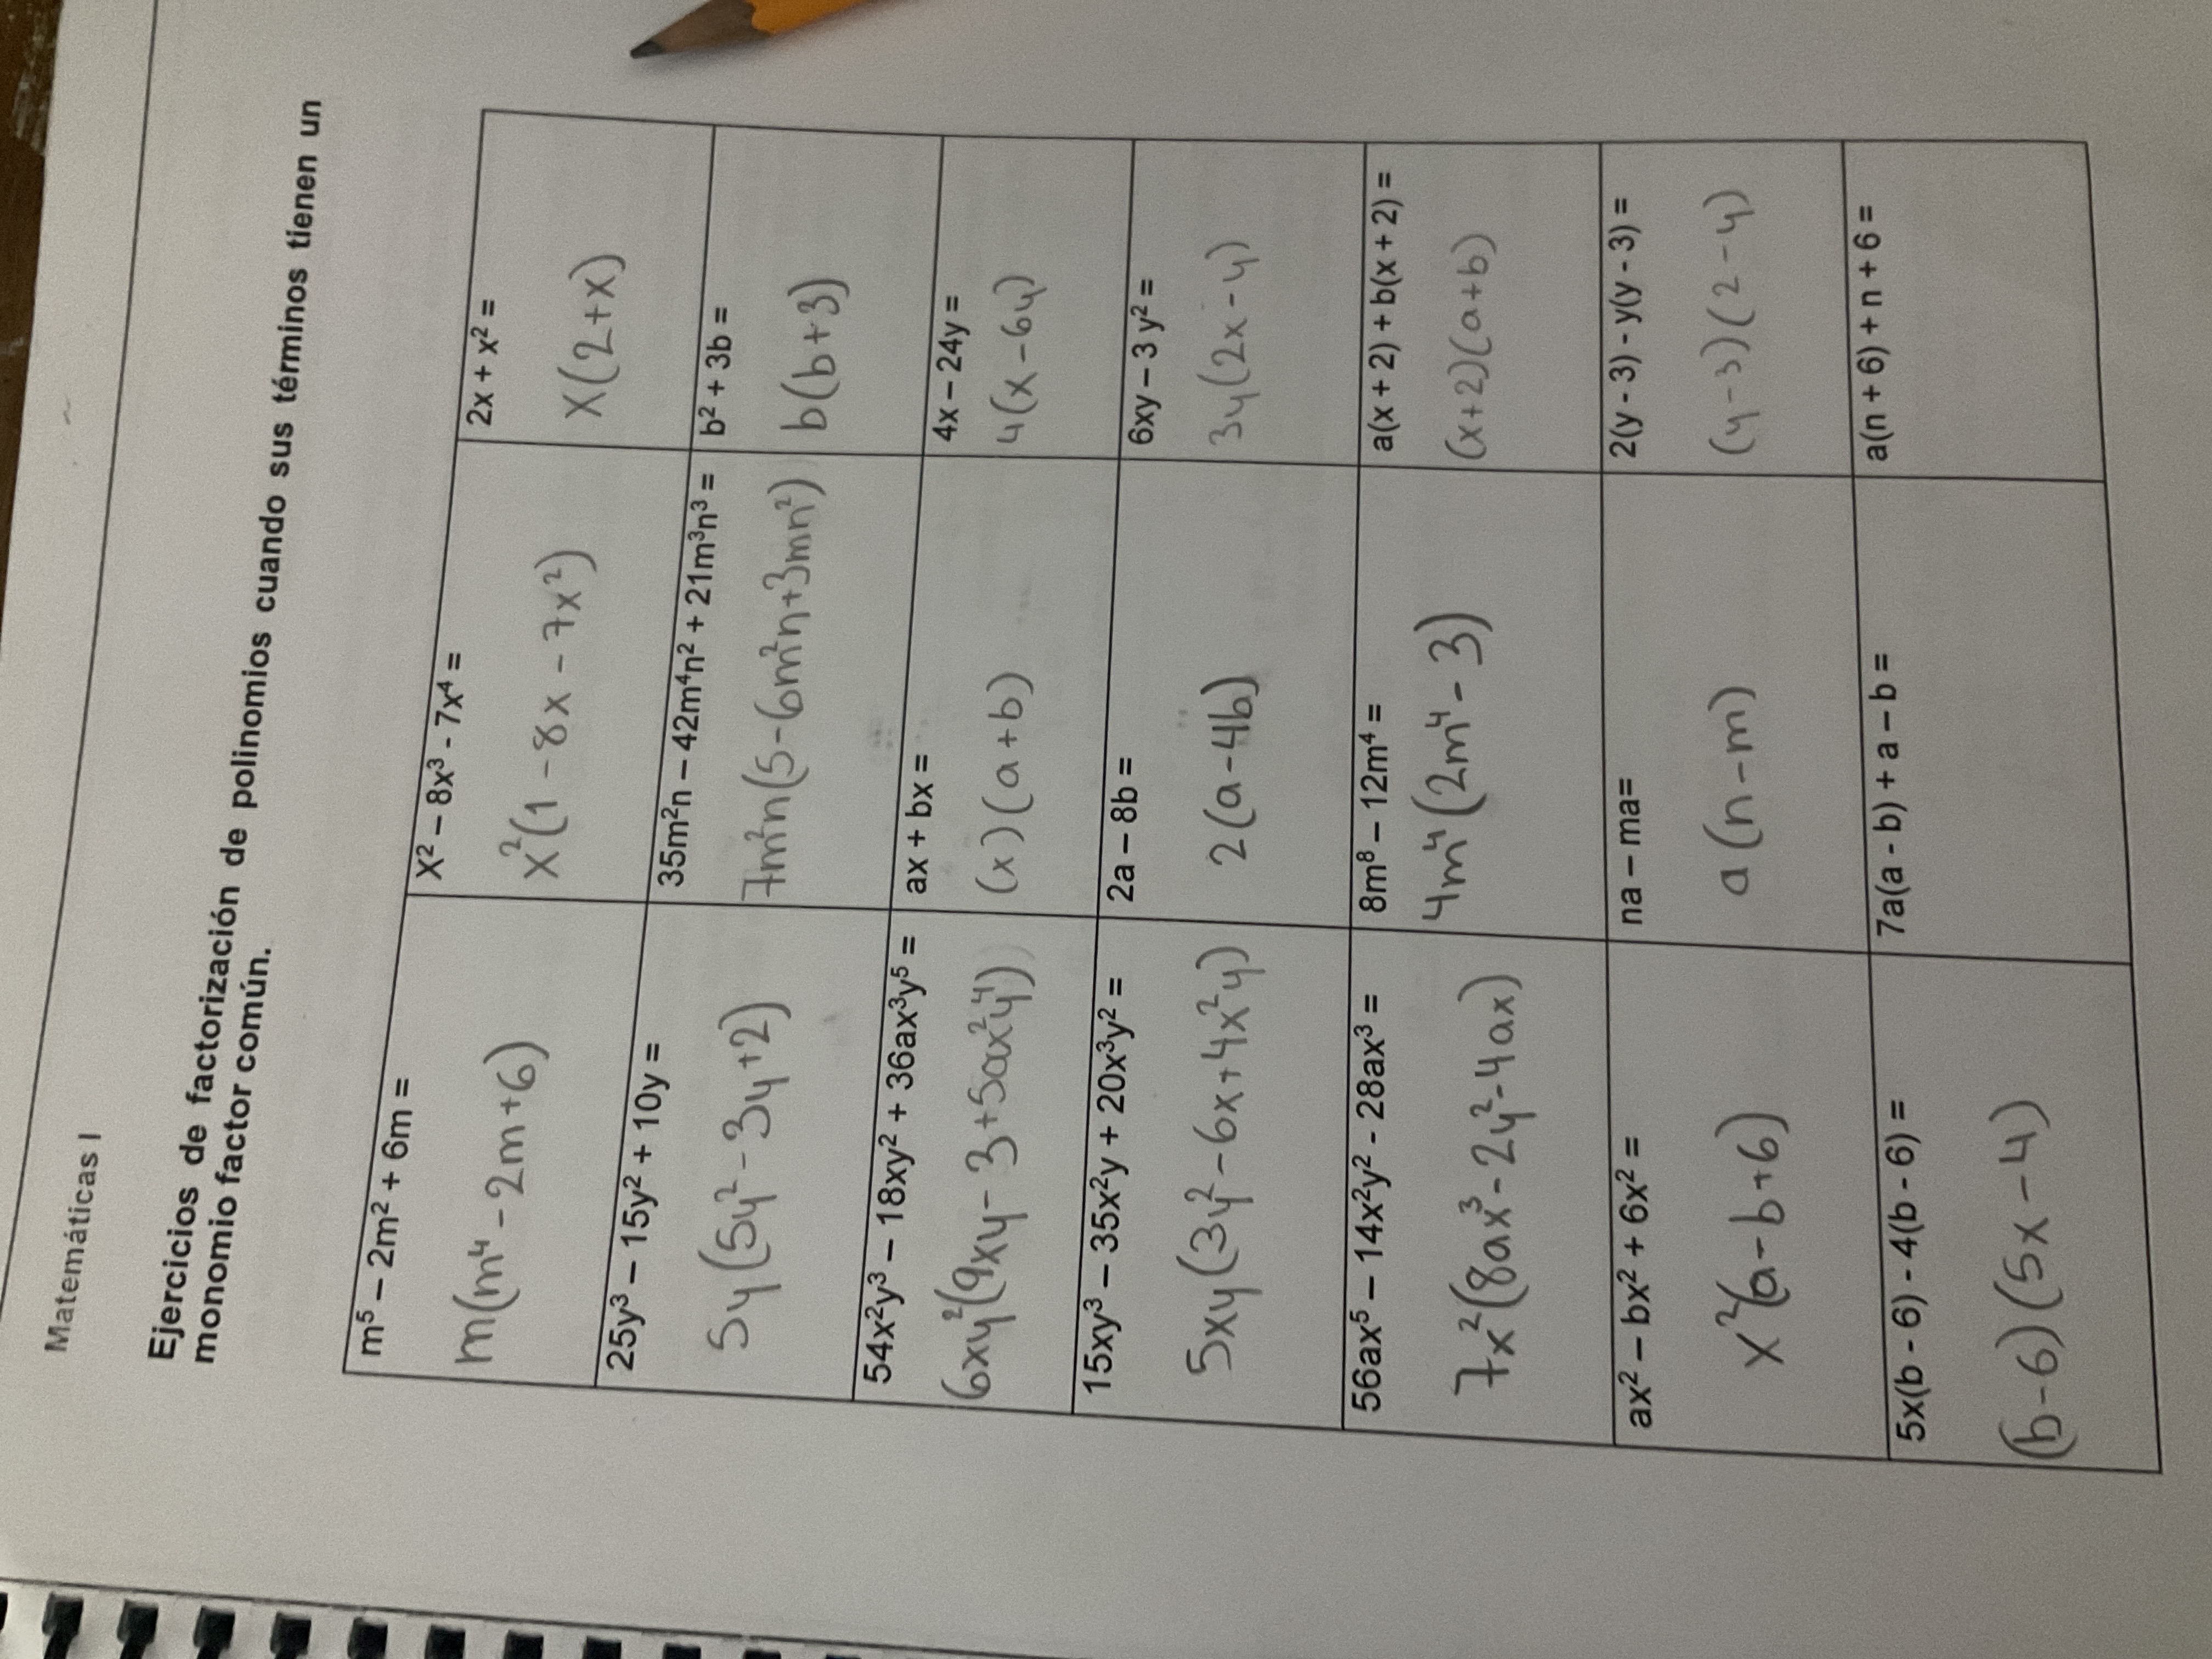 Matemáticas I
Ejercicios de factorización de polinomios cuando sus términos tienen un
monomio factor común.
m⁵ – 2m² + 6m =
m(m⁴ - 2m + 6)
X² – 8x³ - 7x⁴ =
x²(1 - 8x - 7x²)
2x + x² =
x(2+x)
25y³ – 15y² + 10y =
5y(5y² - 3y + 2)
35m²n – 42m⁴n² + 21m³n³ =
7m²n(5 - 6m²n + 3mn²)
b² + 3b =
b(b+3)
54x²y³ – 18xy² + 36ax³y⁵ =
6xy²(9xy - 3 + 5ax²y⁴)
ax + bx =
(x)(a+b)
4x – 24y =
4(x - 6y)
15xy³ – 35x²y + 20x³y² =
5xy(3y² - 6x + 4x²y)
2a – 8b =
2(a - 4b)
6xy – 3 y² =
3y(2x - y)
56ax⁵ – 14x²y² - 28ax³ =
7x²(8ax³ - 2y² - 4ax)
8m⁸ – 12m⁴ =
4m⁴(2m⁴ - 3)
a(x + 2) + b(x + 2) =
(x+2)(a+b)
ax² – bx² + 6x² =
x²(a - b + 6)
na – ma=
a(n - m)
2(y - 3) - y(y - 3) =
(y - 3)(2 - y)
5x(b - 6) - 4(b - 6) =
(b - 6)(5x - 4)
7a(a - b) + a – b =
a(n + 6) + n + 6 =